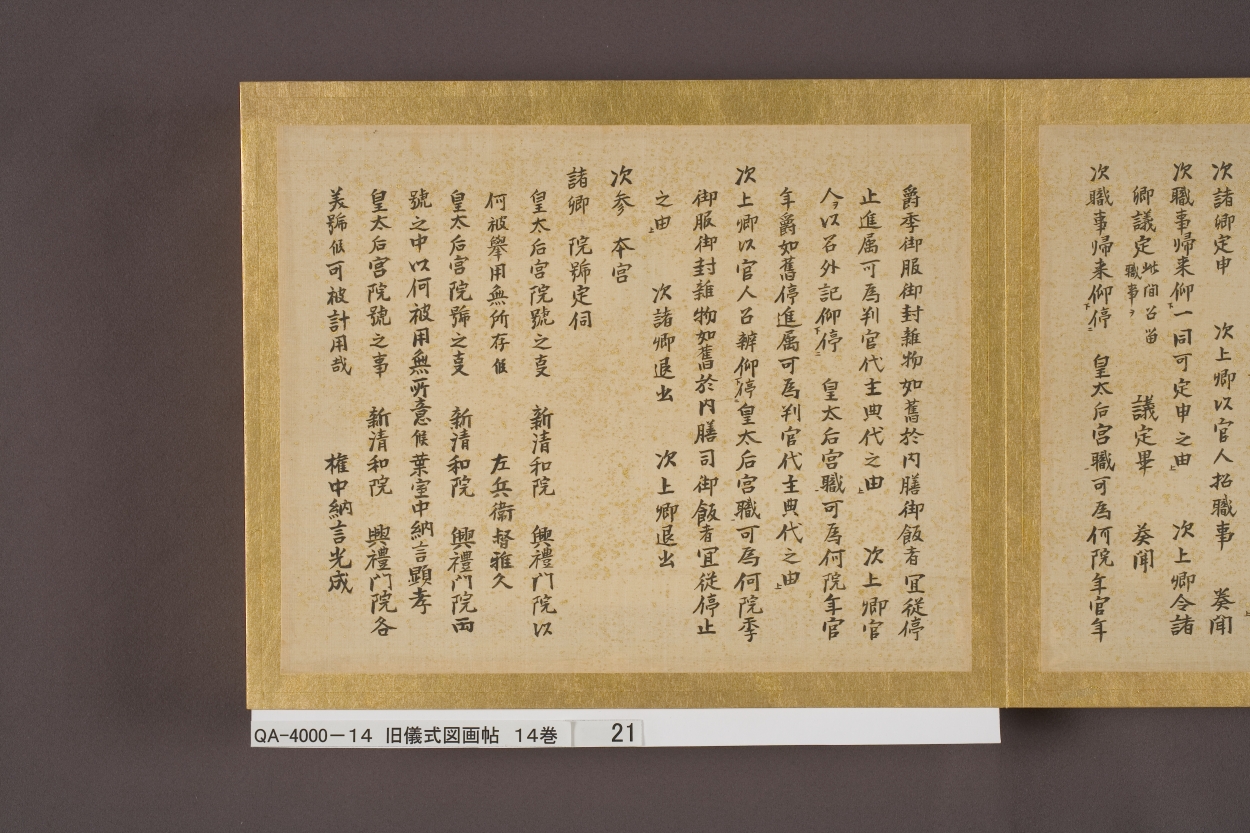 次諸卿定申　次上卿以官人招職事　奏聞
次職事帰来仰下一同可定申之由上　次上卿令諸
卿議定此間召留職事ヲ　議定畢　奏聞
次職事帰来仰下停二　皇太后宮職可為何院年官年
爵季御服御封雑物如舊於内膳御飯者宜従停
止進属可為判官代主典代之由上　次上卿官
人ヲ以召外記仰下停二　皇太后宮職可為何院年官
年爵如舊停進属可為判官代主典代之由上
次上卿以官人召辨仰下停二皇太后宮職可為何院季
御服御封雑物如舊於内膳司御飯者宜従停止
之由上　次諸卿退出　次上卿退出
次参　本宮
諸卿　院號定伺
皇太后宮院號之叓　新清和院　興禮門院以
何被擧用無所存候　左兵衛督雅久
皇太后宮院號之叓　新清和院　興禮門院両
號之中以何被用無所意候葉室中納言顕孝
皇太后宮院號之事　新清和院　興禮門院各
美號候可被計用哉　権中納言光成
QA-4000－14　旧儀式図画帖　14巻　21